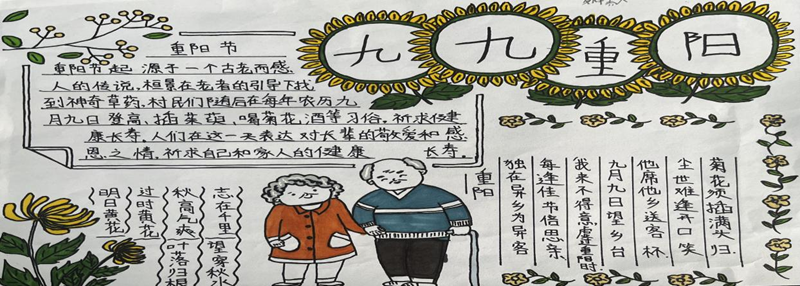 九九重阳
重阳节
重阳节起源于一个古老而感
人的传说,桓景在老者的引导下找
到神奇草药,村民们随后在每年农历九
月九日登高、插茱萸、喝菊花酒等习俗,祈求健
康长寿。人们在这一天表达对长辈的敬爱和感
恩之情,祈求自己和家人的健康长寿。
重阳
菊花须插满头归.
尘世难逢开口笑
他席他乡送客杯.
九月九日望乡台
我来不得意虚重阳时
每逢佳节倍思亲
独在异乡为异客
志在千里 望穿秋水
秋高气爽 叶落归根
过时黄花
明日黄花